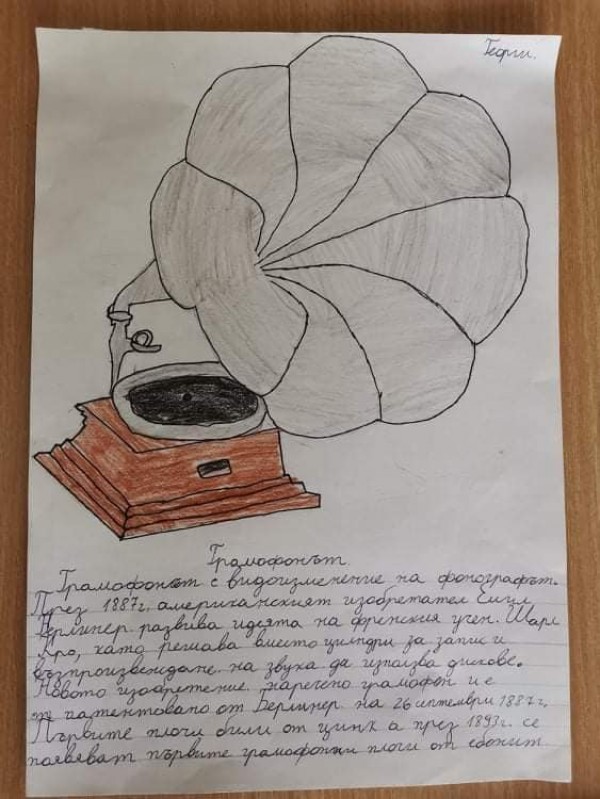 Георги.
Грамофонът
Грамофонът с видоизменение на фонографът.
През 1887г. американският изобретател Емил
Берлинер развива идеята на френския учен. Шарл
Кро, като решава вместо цилндри за запис и
възпроизвеждане на звука да използва дискове.
Новото изобретение наречено грамофон и е
патентовано от Берлинер на 26 септември 1887г.
Първите плочи били от цинк а през 1893г. се
появяват първите грамофонни плочи от ебонит